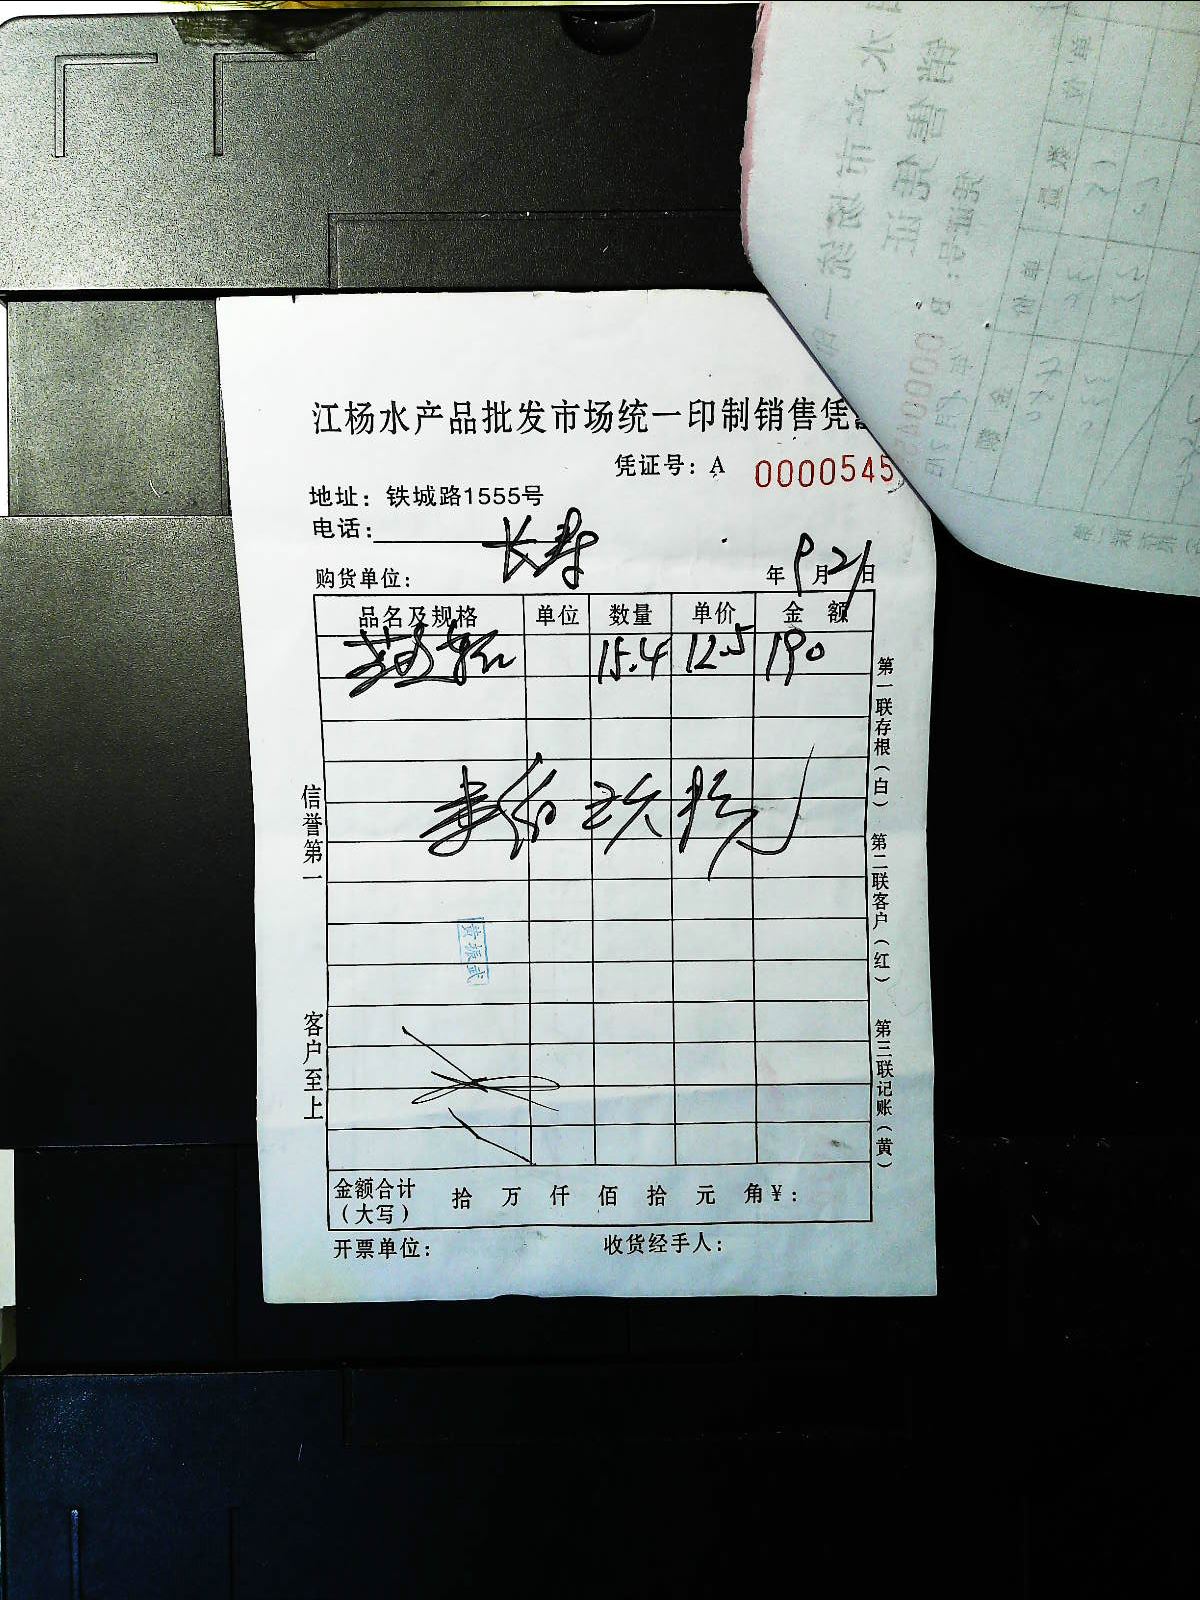 江杨水产品批发市场统一印制销售凭
凭证号：A 0000545
地址：铁城路1555号
电话：
长寿
购货单位： 年 9 月 21 日
品名及规格 单位 数量 单价 金额
15.4 12.5 190
壹佰玖拾元
信誉第一
客户至上
黄振武
第一联存根（白）
第二联客户（红）
第三联记账（黄）
金额合计（大写） 拾 万 仟 佰 拾 元 角 ¥：
开票单位： 收货经手人：